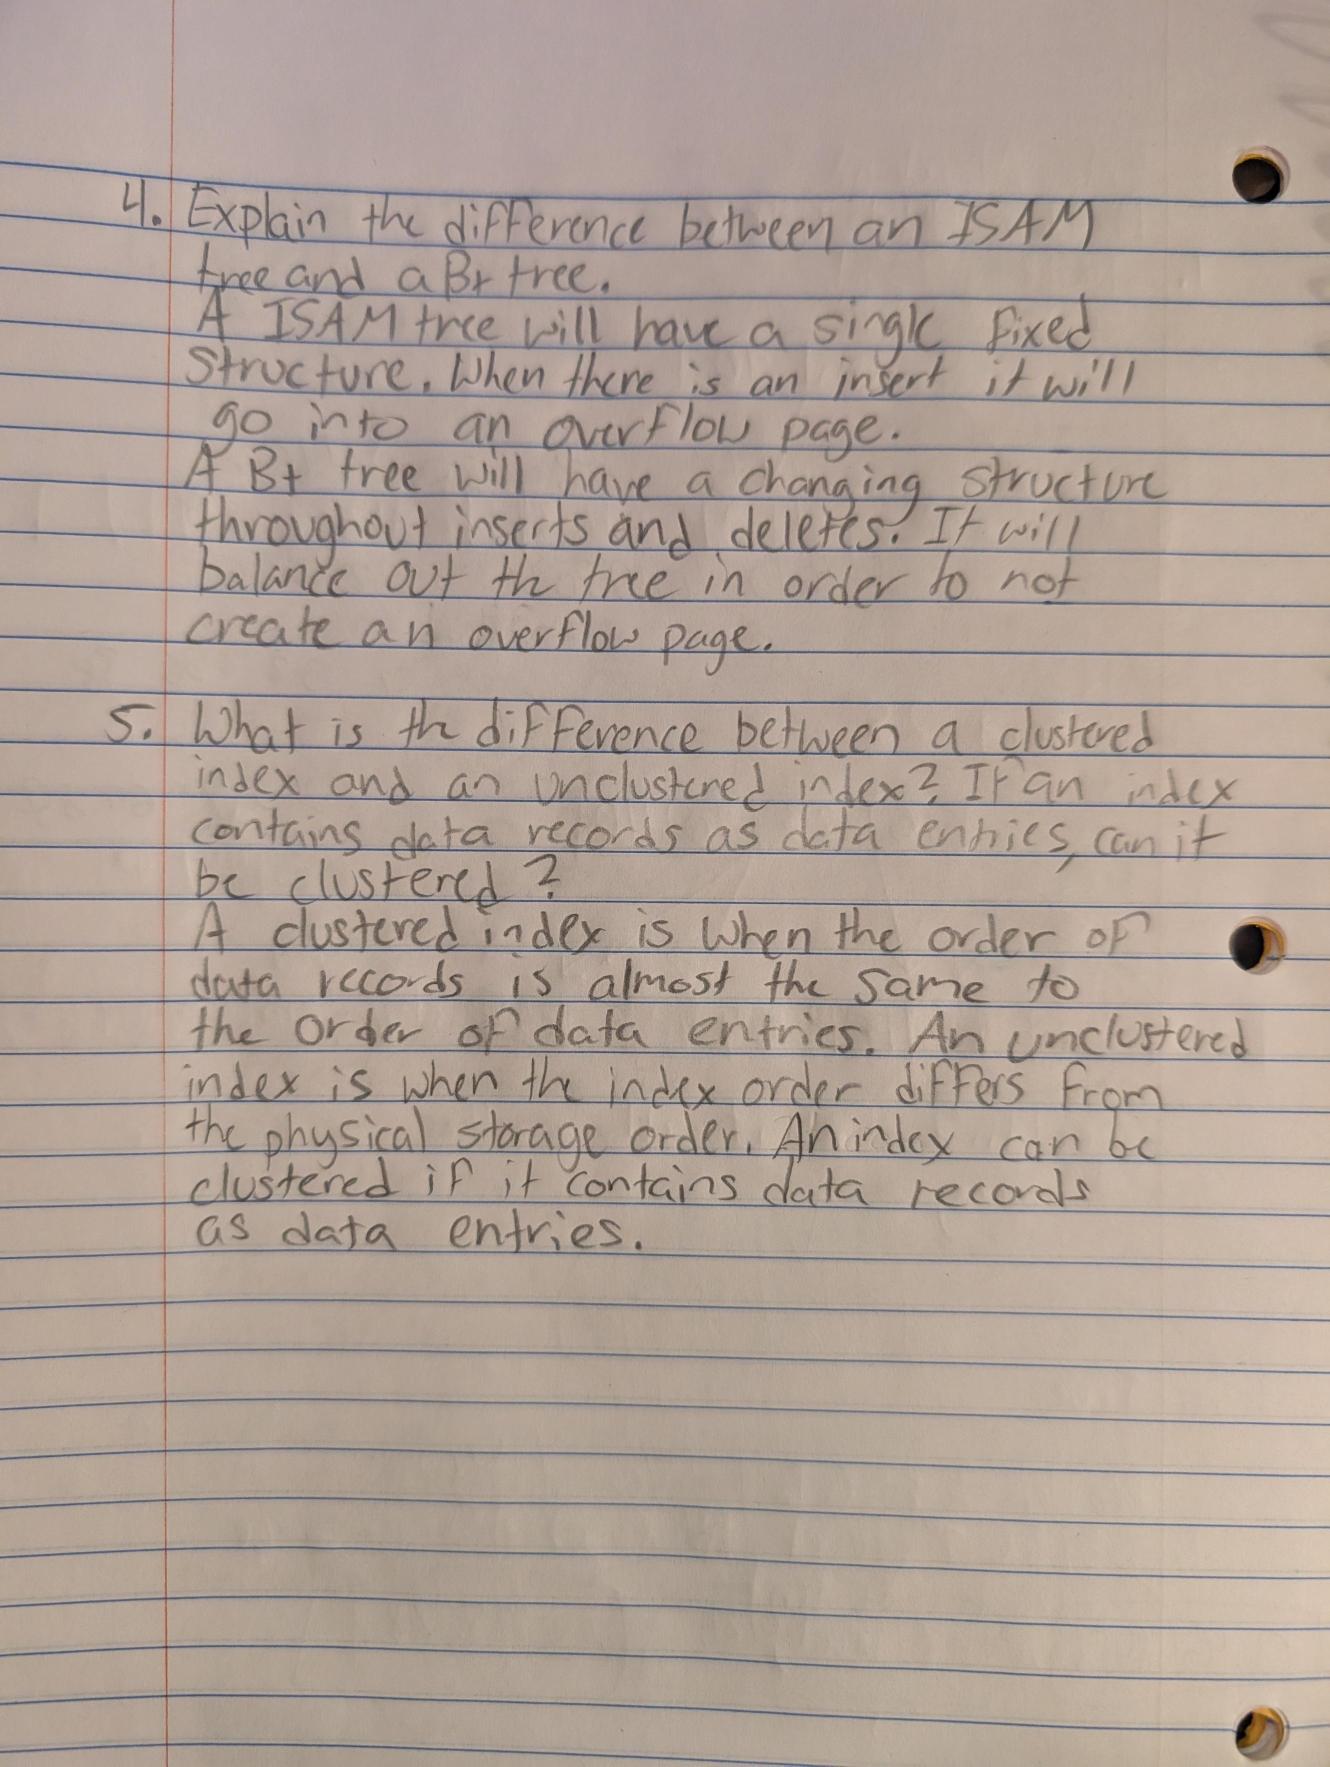 4. Explain the difference between an ISAM
tree and a B+ tree.
A ISAM tree will have a single fixed
structure. When there is an insert it will
go into an overflow page.
A B+ tree will have a changing structure
throughout inserts and deletes. It will
balance out th tree in order to not
create an overflow page.
5. What is th difference between a clustered
index and an unclustered index? If an index
contains data records as data entries, can it
be clustered?
A clustered index is when the order of
data records is almost the same to
the order of data entries. An unclustered
index is when th index order differs from
the physical storage order. An index can be
clustered if it contains data records
as data entries.